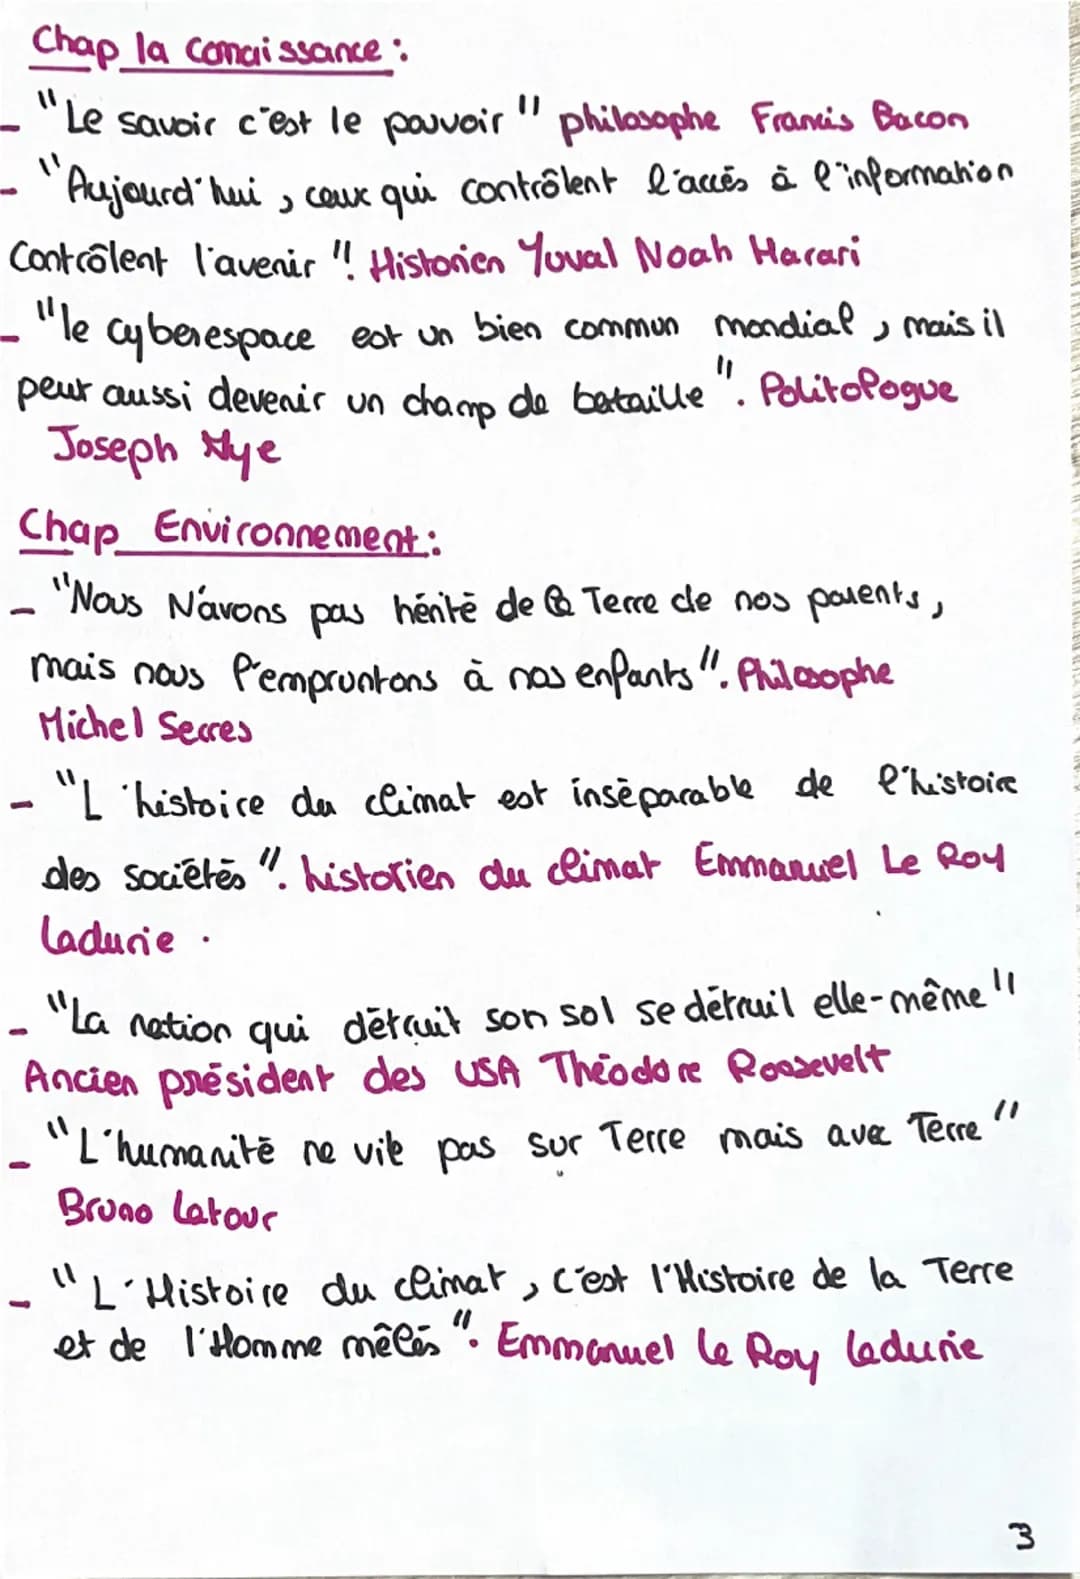 Chap la connaissance :
- "Le savoir c'est le pouvoir" philosophe Francis Bacon
- "Aujourd'hui, ceux qui contrôlent l'accés à l'information
Contrôlent l'avenir". Historien Yuval Noah Harari
- "le cyberespace est un bien commun mondial, mais il
peut aussi devenir un champ de bataille". Politologue
Joseph Nye
Chap Environnement :
- "Nous N'avons pas hérité de la Terre de nos parents,
mais nous l'empruntons à nos enfants". Philosophe
Michel Serres
- "L'histoire du climat est inséparable de l'histoire
des sociétés". historien du climat Emmanuel Le Roy
Ladurie.
- "La nation qui détruit son sol se détruil elle-même"
Ancien président des USA Théodore Roosevelt
- "L'humanité ne vit pas sur Terre mais avec Terre"
Bruno Latour
- "L'Histoire du climat, c'est l'Histoire de la Terre
et de l'Homme mêlés". Emmanuel le Roy ladurie
3